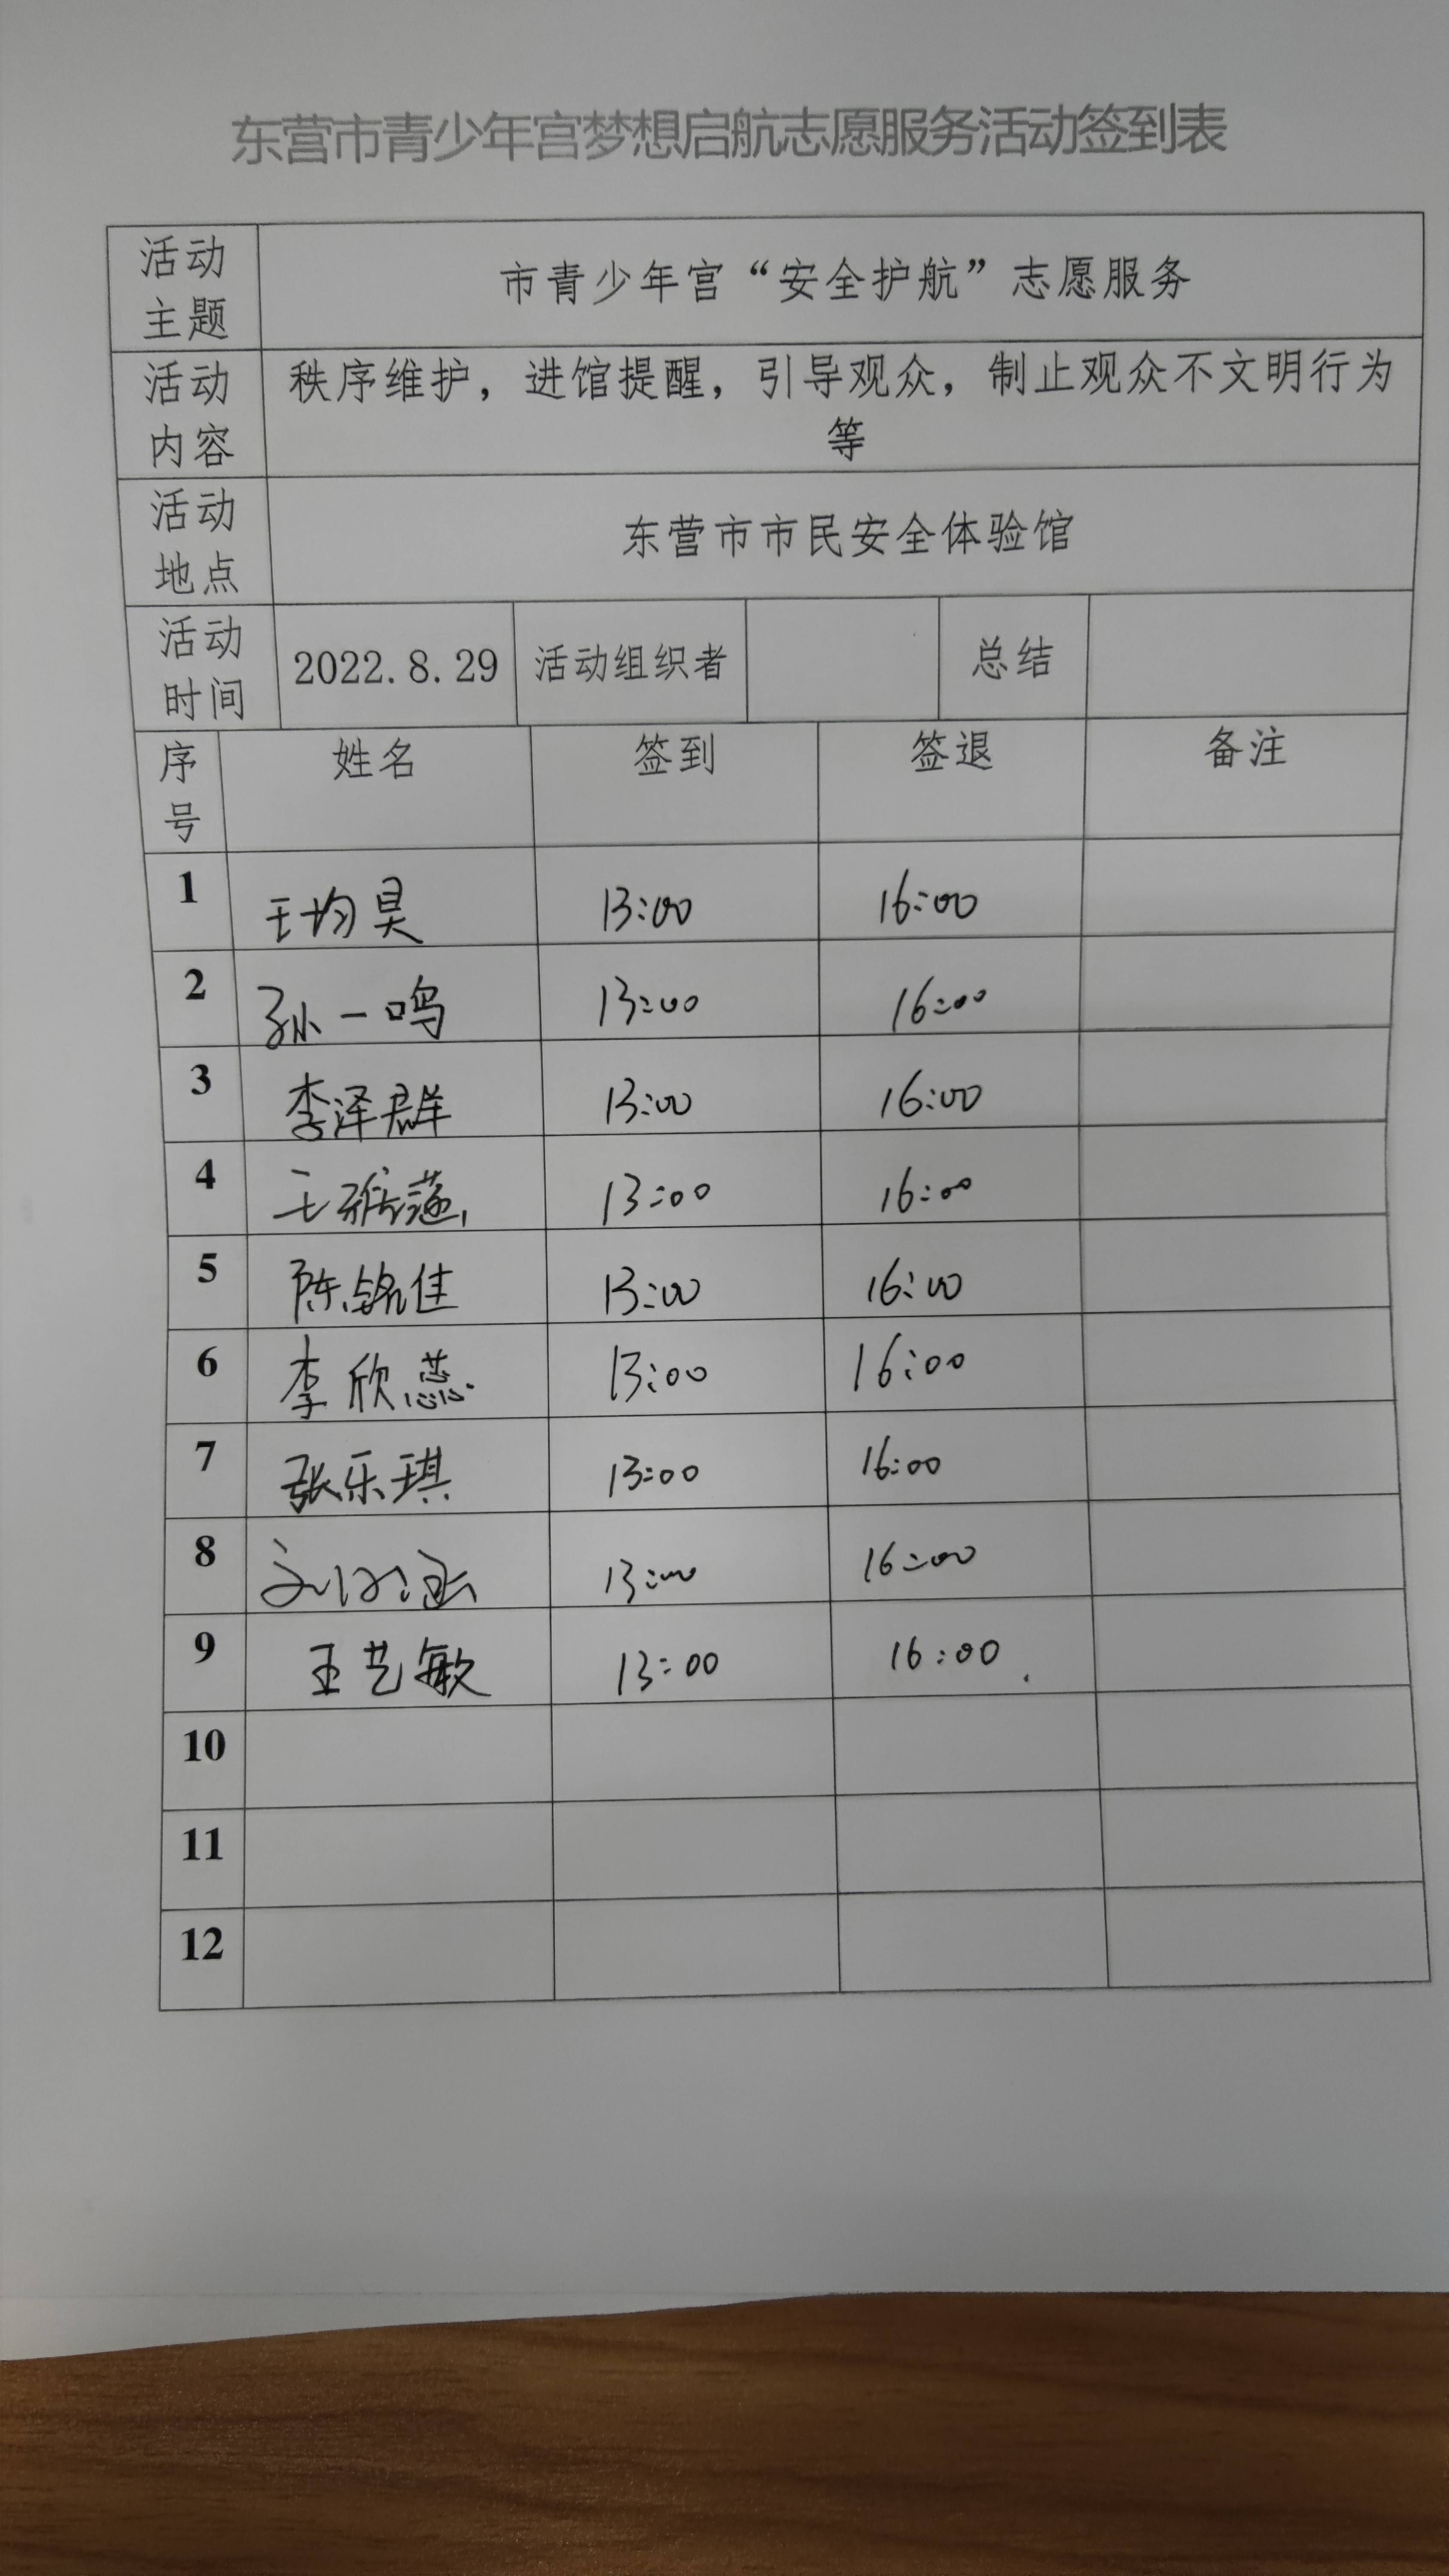 东营市青少年宫梦想启航志愿服务活动签到表
活动
主题
市青少年宫“安全护航”志愿服务
活动
内容
秩序维护，进馆提醒，引导观众，制止观众不文明行为
等
活动
地点
东营市市民安全体验馆
活动
时间
2022.8.29 活动组织者 总结
序
号
姓名 签到 签退 备注
1 王均昊 13:00 16:00
2 孙一鸣 13:00 16:00
3 李泽群 13:00 16:00
4 王雅涵 13:00 16:00
5 陈铭佳 13:00 16:00
6 李欣蕊 13:00 16:00
7 张乐琪 13:00 16:00
8 13:00 16:00
9 王艺敏 13:00 16:00
10
11
12